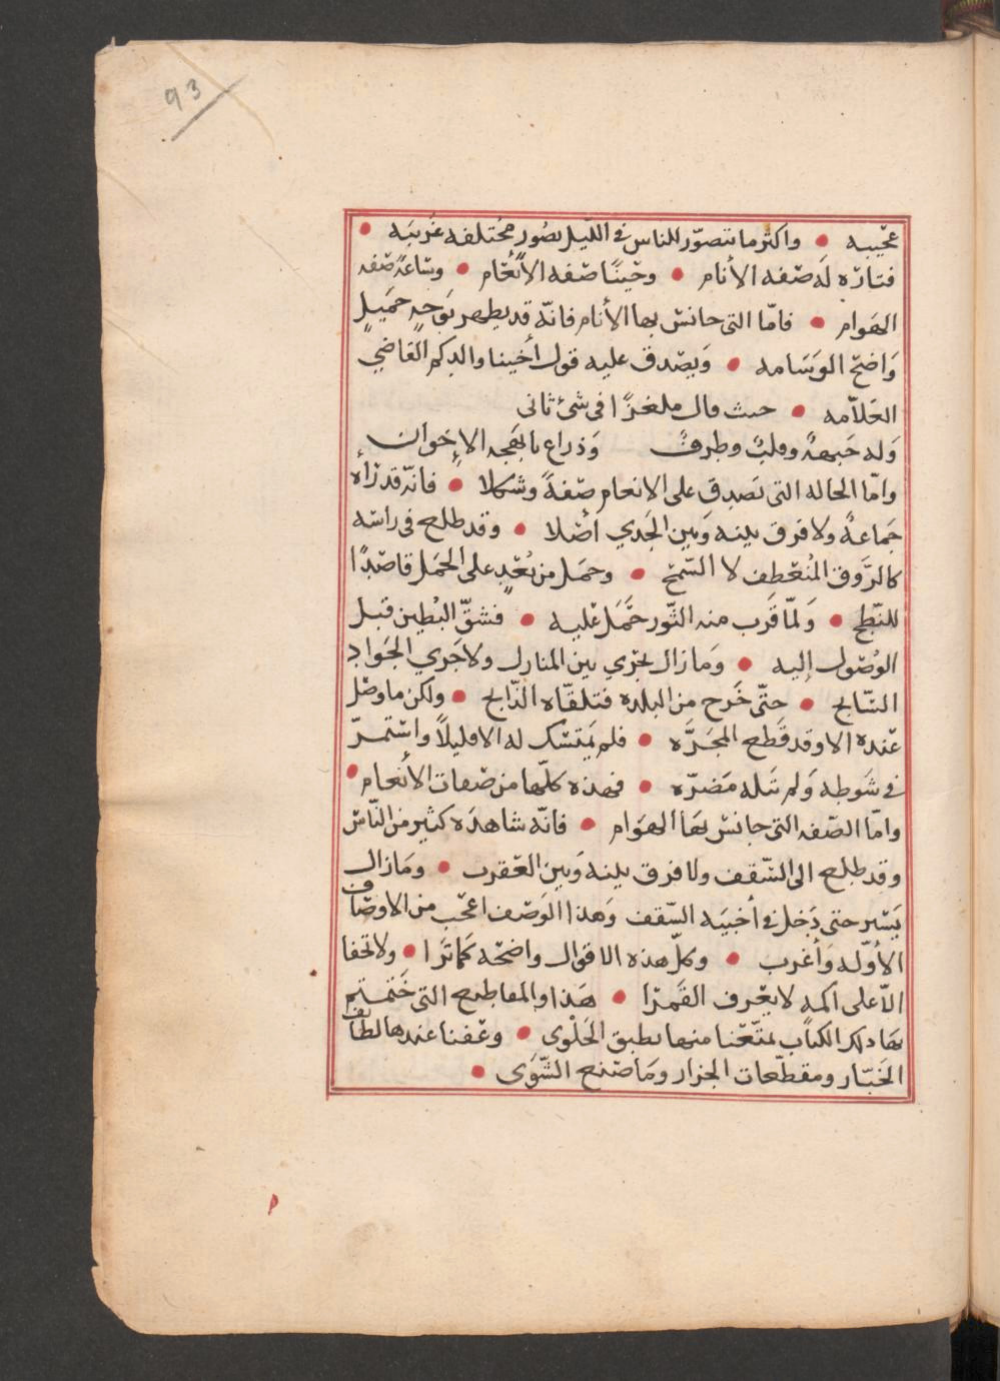 93
عجيبه • واكثر ما يتصوّر للناس في الليل بصور مختلفه غريبه •
فتارة له صفه الأنام • وحينًا صفه الأنعام • وساعةً صفه
الهَوام • فامّا التى جانس بها الأنام فانّه قد يظهر بوَجهٍ جميلٍ
وَاضح الوَسَامه • وَيصْدق عليه قول أخينا والدكم القاضي
العَلّامه • حيث قال ملغزًا في شئ ثانى
وَله جَبهةٌ وقلبٌ وطرفٌ وَذراع يا بهَجة الإخوان
وامّا الحاله التى تصدق على الانعام صفةً وشكلا • فانّه قد رَاه
جَماعةٌ ولا فرق بينه وَبين الجَدي أصْلا • وقد طلع في راسه
كالرَّوق المنُعْطف لا السّمح • وحمَل من بُعْدٍ على الحمَل قاصْدًا
للنّطح • وَلمّا قَرب منه الثّور حَّمَل عْليه • فشقّ البُطين قبل
الوُصْول إليه • وَمازال يجْري بين المنازل ولا جَري الجَواد
السّابح • حتّى خَرج من البلده فتلقّاه الذّابح • ولكن ما وصْل
عنده الا وقد قَطع المجَرَّه • فلم يَمتسْك له الا قليلاً واسْتمرّ
في شَوطه وَلم تنَله مَضرّه • فهذه كلّها من صْفات الأنعام •
وامّا الصّفه التى جانس بهَا الهَوام • فانّه شاهدَه كثير من النّاس
وقد طلع الى السّقف ولا فرق بينه وَبين العقرب • ومَازال
يَسْير حتى دَخل في أخبيَه السّقف وَهذا الوَصْف اعجَب من الاوصْاف
الأوّله وَأغرب • وكلّ هذه الاقوال واضحْه كَما ترَا • ولا تخفا
الّا على اكمه لا يعْرف القمرَا • هَذا والمقاطيع التى خَتمتم
بهَا ذلكم الكتاب تمتّعْنا منها بطبق الحَلْوى • وعْفنا عندها لطائف
الخَبّاز ومقطّعات الجزار ومَا صْنع الشّوَى •